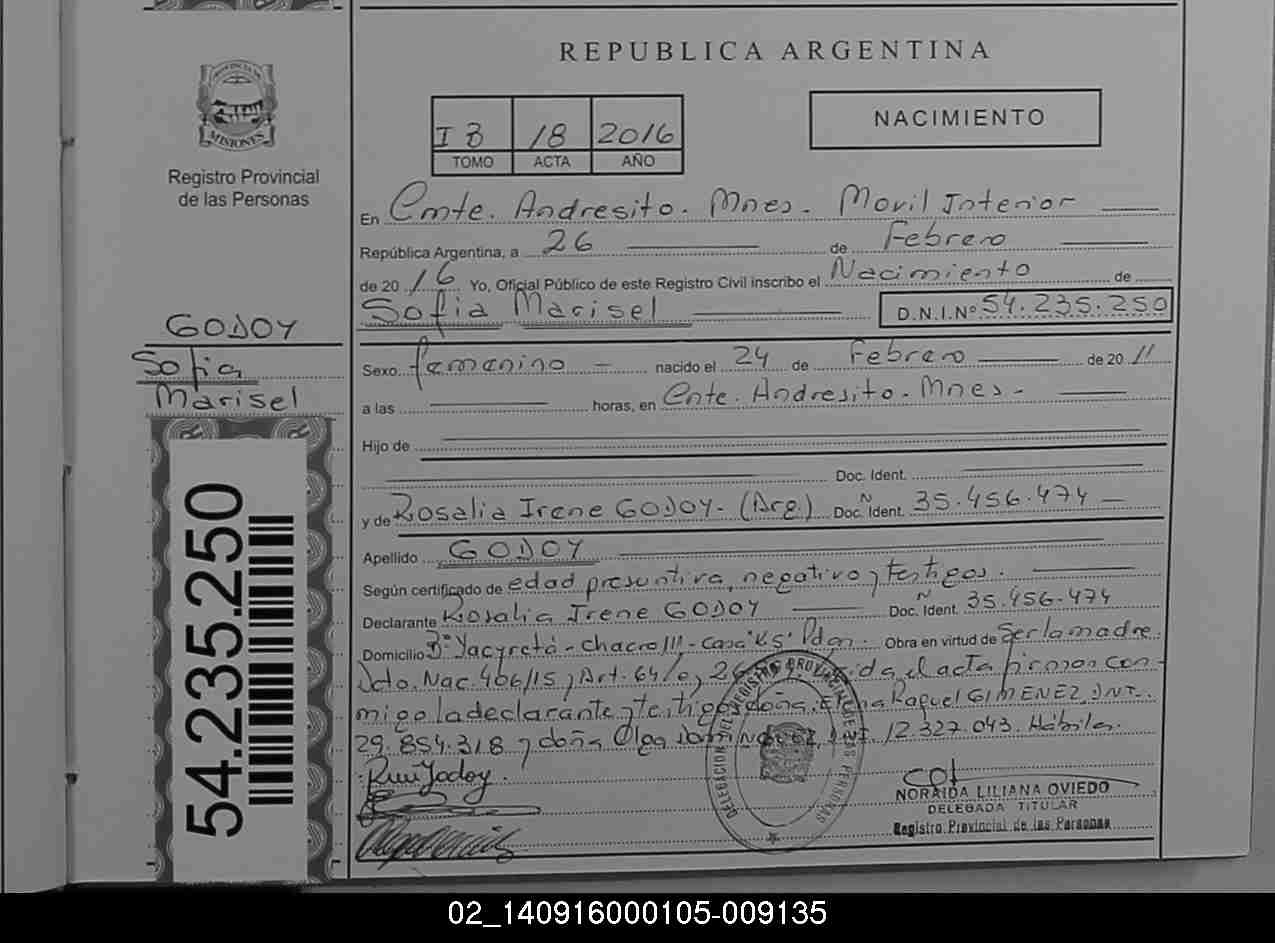 REPUBLICA ARGENTINA
PROVINCIA DE
MISIONES
Registro Provincial
de las Personas
I B 18 2016
TOMO ACTA AÑO
NACIMIENTO
En Cmte. Andresito. Mnes. Movil Interior
República Argentina, a 26 de Febrero
de 20 16 Yo, Oficial Público de este Registro Civil inscribo el Nacimiento de
Sofia Marisel D.N.I.Nº 54.235.250
GODOY
Sofia
Marisel
54.235.250
Sexo femenino nacido el 24 de Febrero de 20 11
a las horas, en Cnte. Andresito. Mnes.
Hijo de
Doc. Ident.
y de Rosalia Irene GODOY. (Arg.) Doc. Ident. N 35.456.474
Apellido GODOY
Según certificado de edad presuntiva, negativo y testigos.
Declarante Rosalia Irene GODOY Doc. Ident. N 35.456.474
Domicilio Bº Yacyretá - chacra 111 - casa "K5" Pdas. Obra en virtud de Ser la madre.
Dcto. Nac. 406/15 y Art. 64 el acta firman con-
migo la declarante y testigos doña: Raquel GIMENEZ DNI.
29.854.318 y doña Olga 12.327.043. Hábiles.
DELEGACION DEL REGISTRO PROVINCIAL DE LAS PERSONAS
NORAIDA LILIANA OVIEDO
DELEGADA TITULAR
Registro Provincial de las Personas
02_140916000105-009135